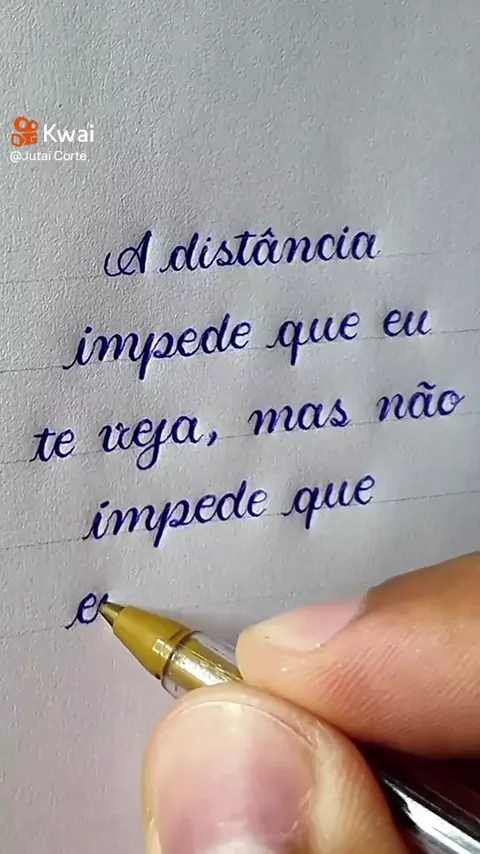 Kwai
@Jutaí Corte
A distância
impede que eu
te veja, mas não
impede que
eu